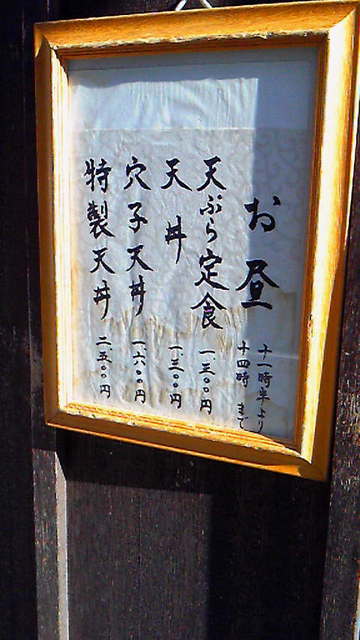 お昼
十一時半より
十四時まで
天ぷら定食 一、三〇〇円
天丼 一、三〇〇円
穴子天丼 一、六〇〇円
特製天丼 二、五〇〇円